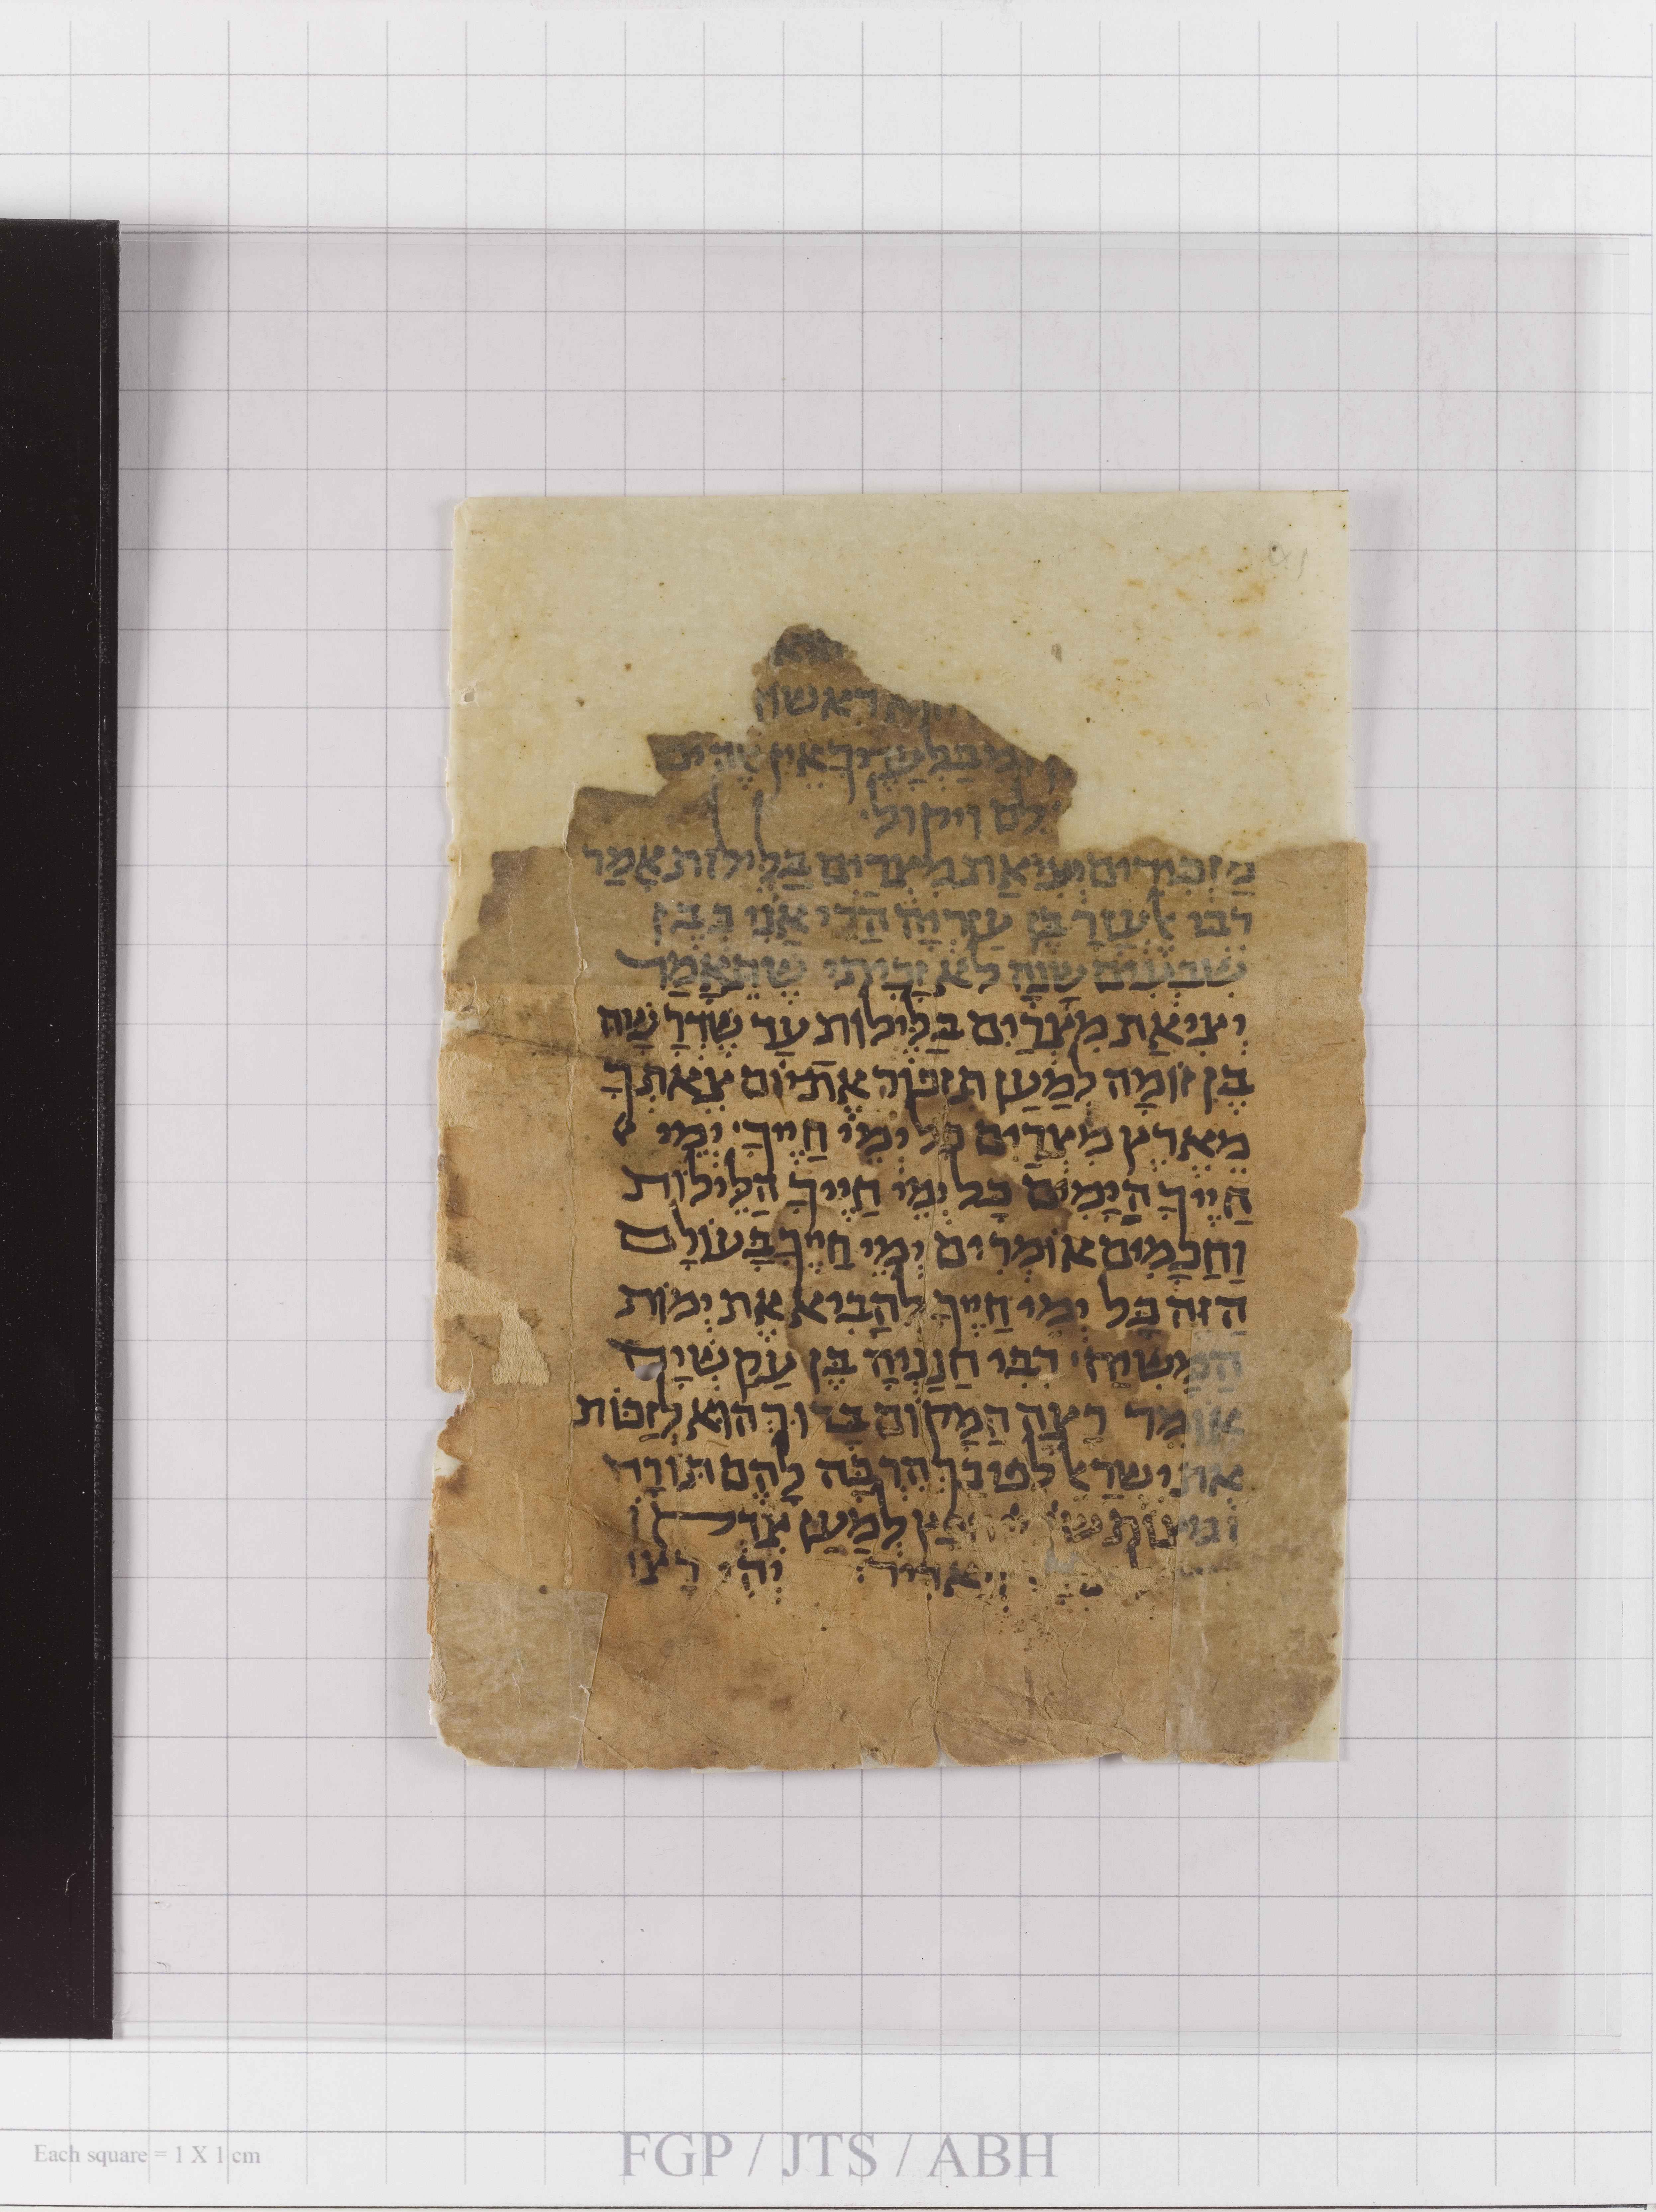 ראשה
ומבלעדיך אין
לם ויקול
מַזְכִּירִים יְצִיאַת מִצְרַיִם בַּלֵּילוֹת אָמַר
רִבִּי אֶלְעָזָר בֶּן עֲזַרְיָה הֲרֵי אֲנִי כְּבֶן
שִׁבְעִים שָׁנָה לֹא זָכִיתִי שֶׁתֵּאָמַר
יְצִיאַת מִצְרַיִם בַּלֵּילוֹת עַד שֶׁדְּרָשָׁהּ
בֶּן זוֹמָה לְמַעַן תִּזְכּוֹר אֶת יוֹם צֵאתְךָ
מֵאֶרֶץ מִצְרַיִם כָּל יְמֵי חַיֶּיךָ יְמֵי
חַיֶּיךָ הַיָּמִים כָּל יְמֵי חַיֶּיךָ הַלֵּילוֹת
וַחֲכָמִים אוֹמְרִים יְמֵי חַיֶּיךָ בָּעוֹלָם
הַזֶּה כָּל יְמֵי חַיֶּיךָ לְהָבִיא אֶת יְמוֹת
הַמָּשִׁיחַ רִבִּי חֲנַנְיָה בֶּן עֲקַשְׁיָה
אוֹמֵר רָצָה הַמָּקוֹם בָּרוּךְ הוּא לְזַכּוֹת
אֶת יִשְׂרָאֵל לְפִיכָךְ הִרְבָּה לָהֶם תּוֹרָה
וּמִצְוֹת שֶׁנֶּ חָפֵץ לְמַעַן צִדְקוֹ
וְיַאְדִּיר יְהִי רָצוֹ
Each square = 1 X 1 cm
FGP / JTS / ABH